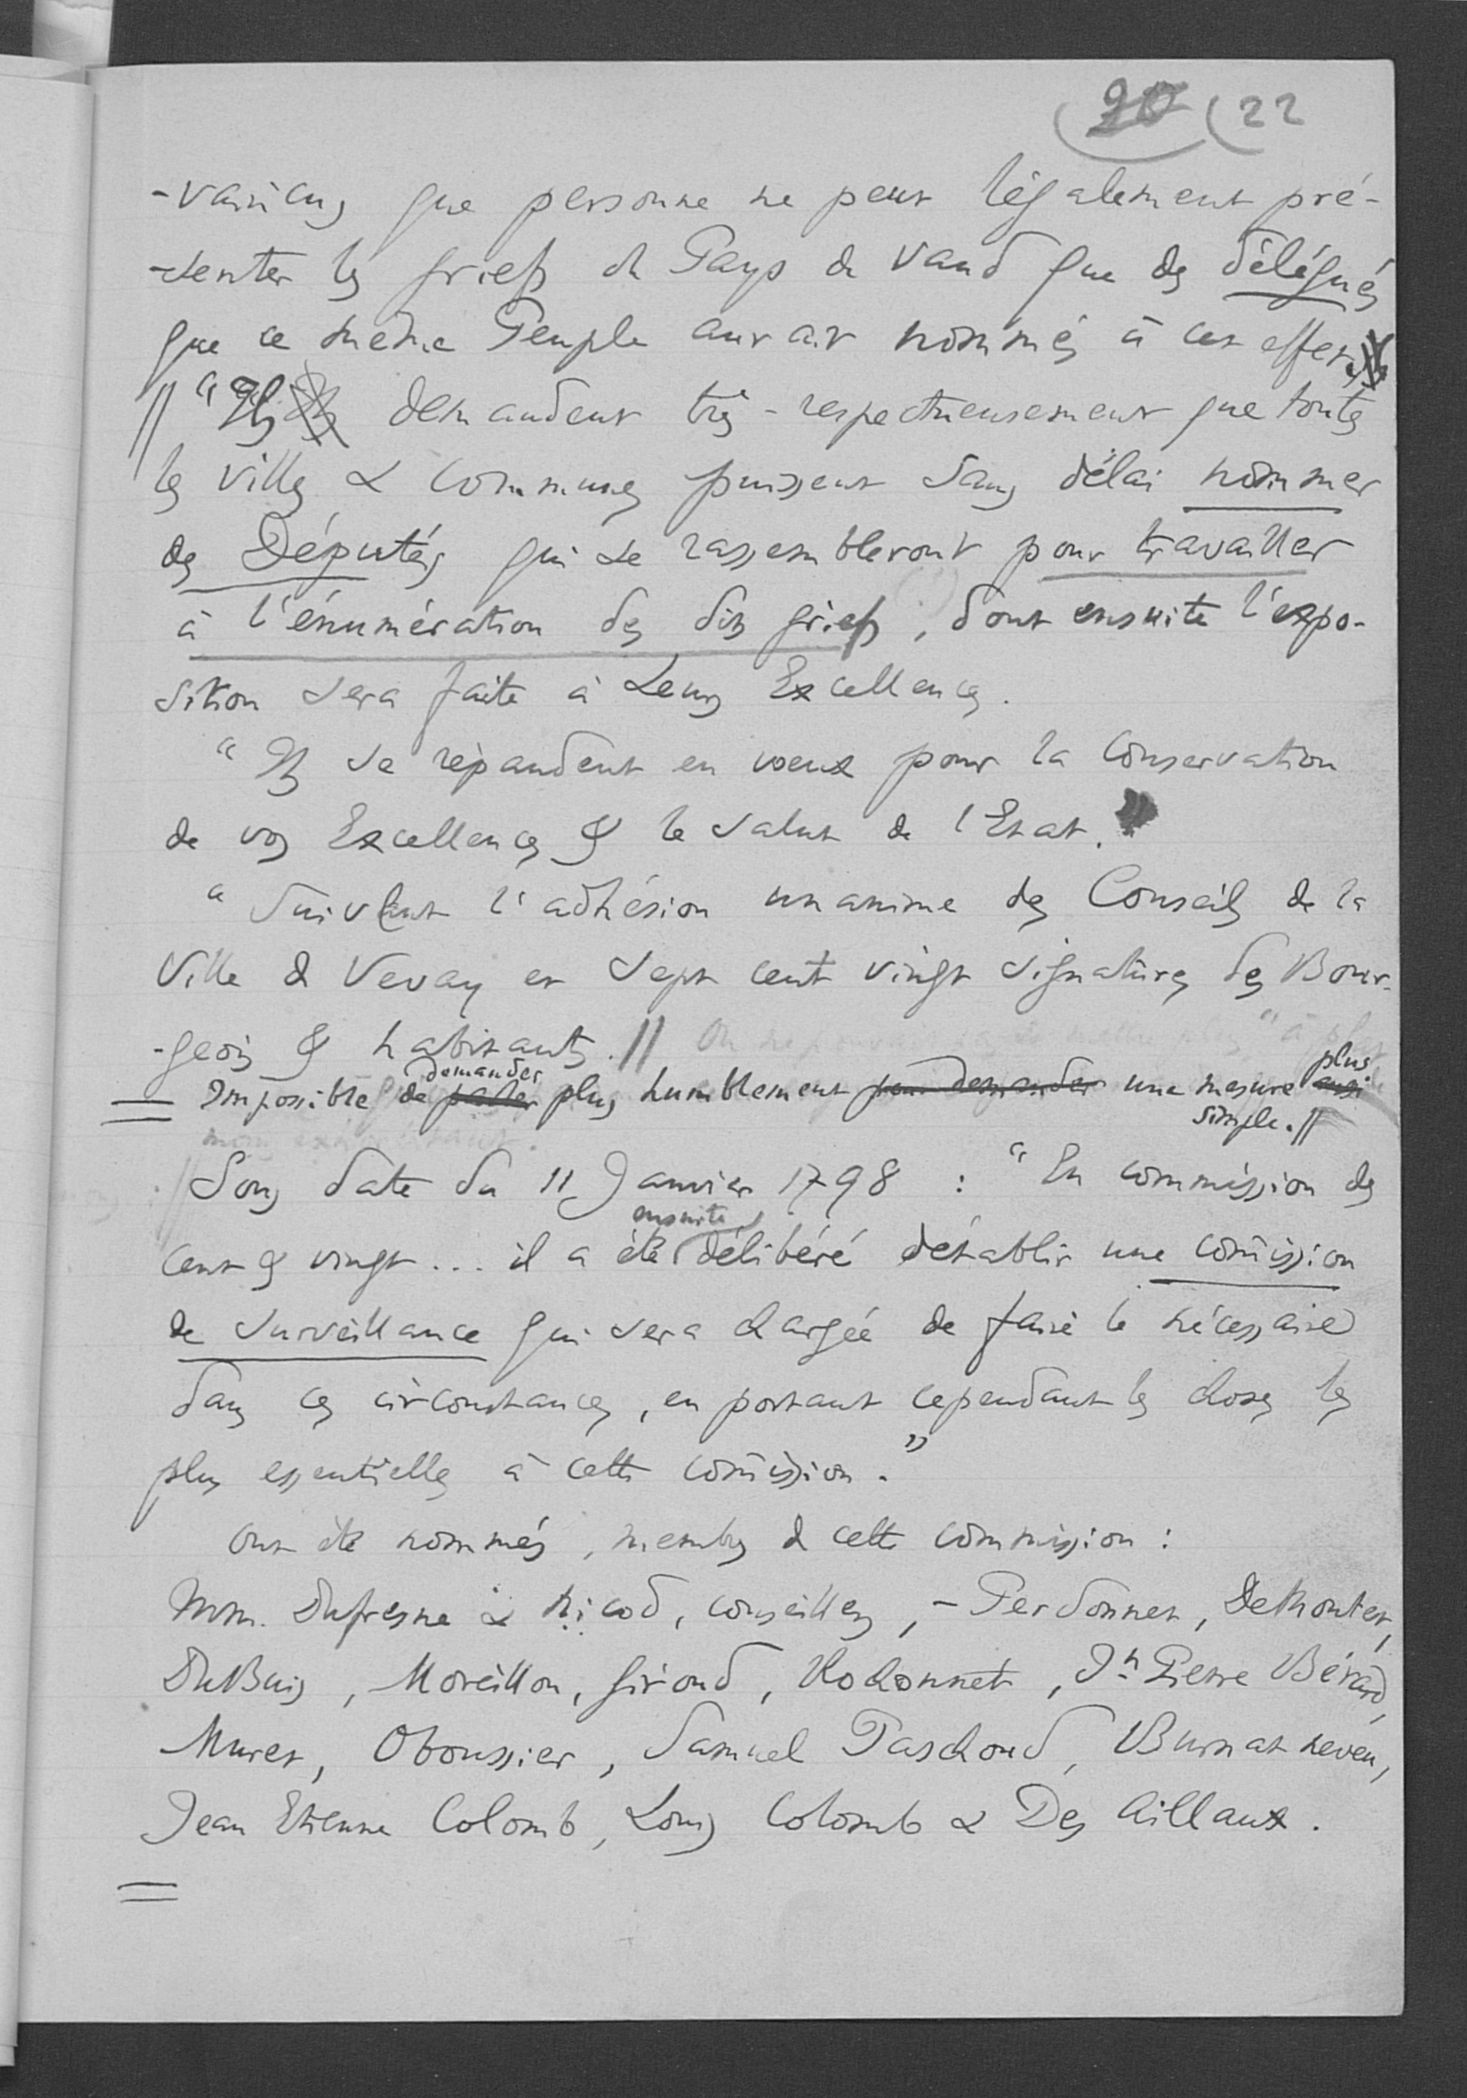 20 22
-vaincus que personne ne peut légalement pré-
-senter les griefs du Pays de Vaud que des délégués
que ce même Peuple aurait nommés à cet effet.
// "Ils demandent très-respectueusement que toutes
les villes & Communes puissent sans délai nommer
des Députés qui se rassembleront pour travailler
à l'énumération des dits griefs, dont ensuite l'expo-
sition sera faite à Leurs Excellences.
"Ils se répandent en voeux pour la conservation
de vos Excellences & le salut de l'Etat.
"Suivent l'adhésion unanime des Conseils de la
Ville de Vevay et sept cent vingt signatures des Bour-
-geois & habitants. //
demander plus
Impossible de parler plus humblement pour demander une mesure aussi
simple. //
Sous date du 11 Janvier 1798 : "En commission des
ensuite
cent & vingt... il a été délibéré d'établir une com̄ission
de surveillance qui sera chargée de faire le nécessaire
dans ces circonstances, en portant cependant les choses les
plus essentielles à cette com̄ission."
Ont été nommés, membres de cette commission :
Mm. Dufresne & Nicod, conseillers, - Perdonnet, DeMontet,
DuBuis, Moreillon, Girond, Rochonnet, Jn Pierre Bérard,
Muret, Oboussier, Samuel Paschoud, Burnat neveu,
Jean Etienne Colomb, Louis Colomb & Des Aillaux.